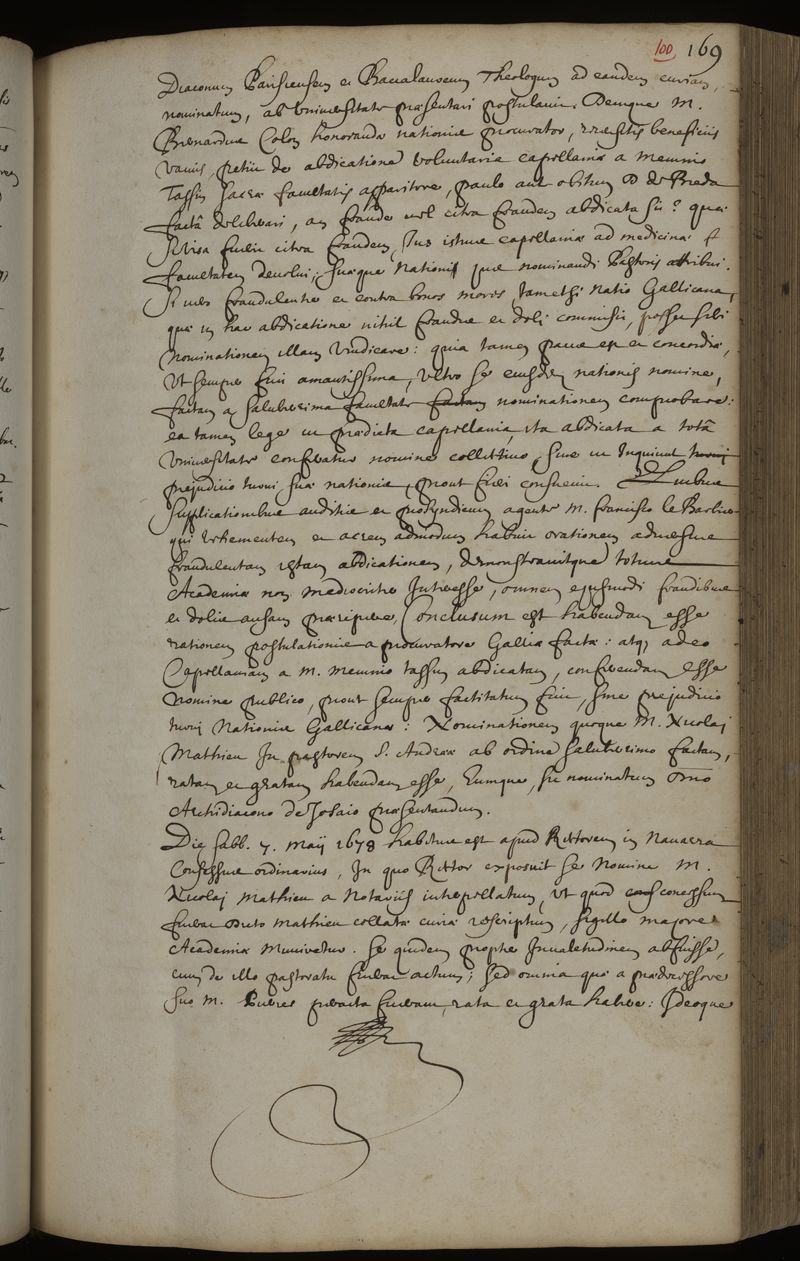 100 169
Diaconum Parisiensem et Baccalaureum Theologum ad eandem curiam,
nominatum, ab Universitate præsentari postulavit. Denique M.
Bernardus Colon honorandæ nationis procurator, recensitis beneficiis
variis, petiit de abdicatione voluntaria capellaniæ a Memmio
Tassin sacræ facultatis apparitore, paulo ante obitum D de Breda
factâ deliberari, an fraude vel citra fraudem abdicata sit? quæ
si visa fuerit citra fraudem, Jus istius capellaniæ ad medicinæ
facultatem devolvi, suæque Nationis jus nominandi Pastoris attribui.
Si vero fraudulenter et contra bonos mores, tametsi natio Gallicana,
quæ in hac abdicatione nihil fraudis et doli commisit, posset sibi
Nominationem illam vindicare: quia tamen pacis est et concordiæ,
ut semper fuit amantissima, ultro se eiusdem nationis nomine,
factam a saluberrima facultate factam nominationem comprobare:
ea tamen lege ut prædicta capellania, ita abdicata a totâ
Universitate conferatur nomine collectivo, sine ut inquiunt turni
prejudicio turni suæ nationis, prout fieri consuevit. Quibus
supplicationibus auditis et prosyndicum agente M. Francisco le Barbier
qui vehementem et acrem admodum habuit orationem adversus
fraudulentam istam abdicationem, demonstravitque totius
Academiæ non mediocriter Interesse, omnem ejusmodi fraudibus
et dolis ansam præripere, Conclusum est habendam esse
rationem postulationis a procuratore Galliæ factæ: atq; adeo
Capellaniam a M. Memmio Tassin abdicatam, conferendam esse
Nomine publico, prout semper factitatum fuit, sine prejudicio
turni Nationis Gallicanæ: Nominationem quoque M. Nicolai
Mathieu In pastorem S. Andreæ ab ordine saluberrimo factam,
ratam et gratam habendam esse, Eumque, sic nominatum Dno
Archidiacono de Josaio præsentandum.
Die sabb. 7. Maij 1678 habitus est apud Rectorem in Navarra
Consessus ordinarius, In quo Rector exposuit se Nomine M.
Nicolai Mathieu a Notariis interpellatum, ut quod conf concessum
fuerat dicto Mathieu collatæ curiæ rescriptum, sigillo majore
Academiæ Muniretur. Se quidem propter Invaletudinem abfuisse,
cum de illo pastoratu fuerat actum; sed omnia quæ a prædecessore
suo M. peracta fuerant, rata et grata habere: Ideoque